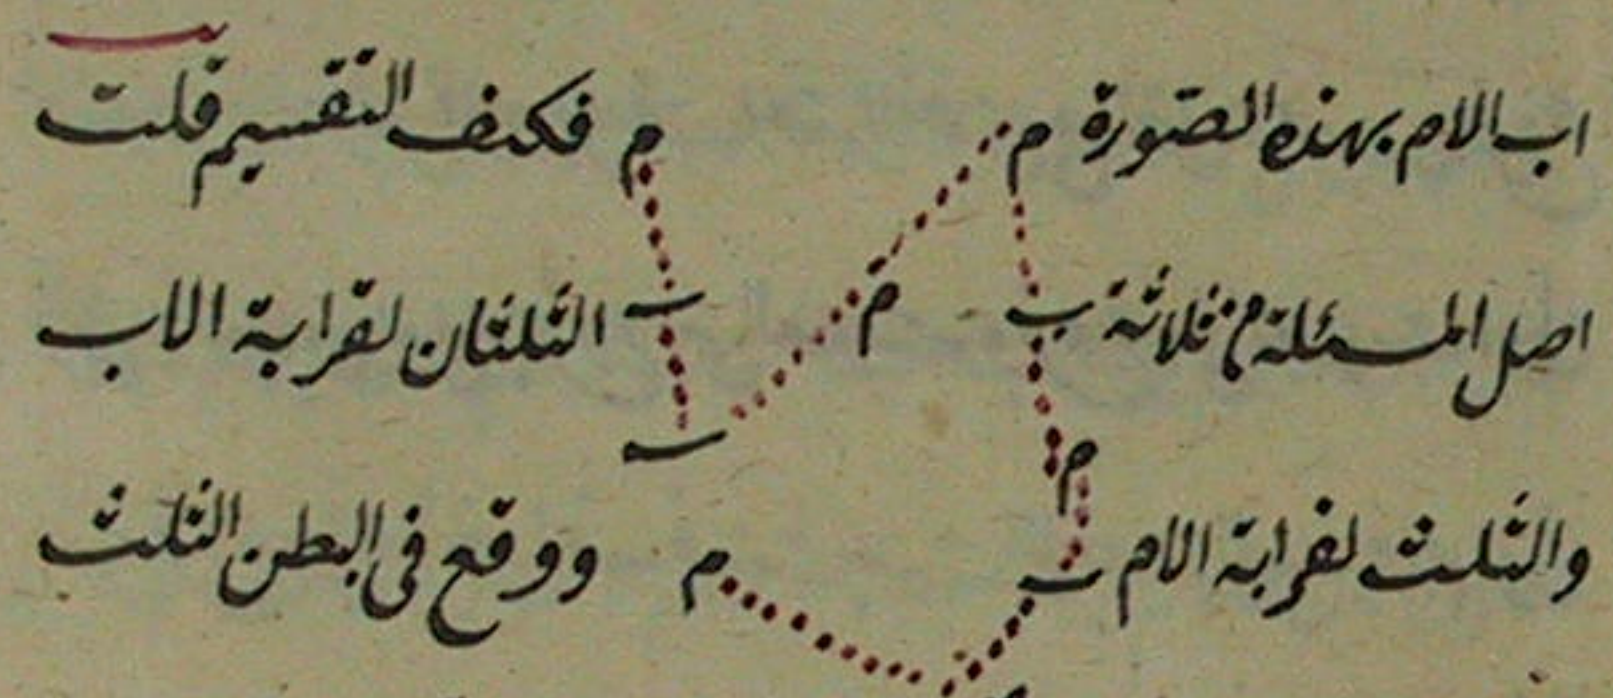 اب الام بهذه الصورة م م فكيف التقسيم قلت
اصل المسئلة من ثلاثة ب م ب الثلثان لقرابة الاب
م ب
والثلث لقرابة الام ب م ووقع فى البطن الثلث